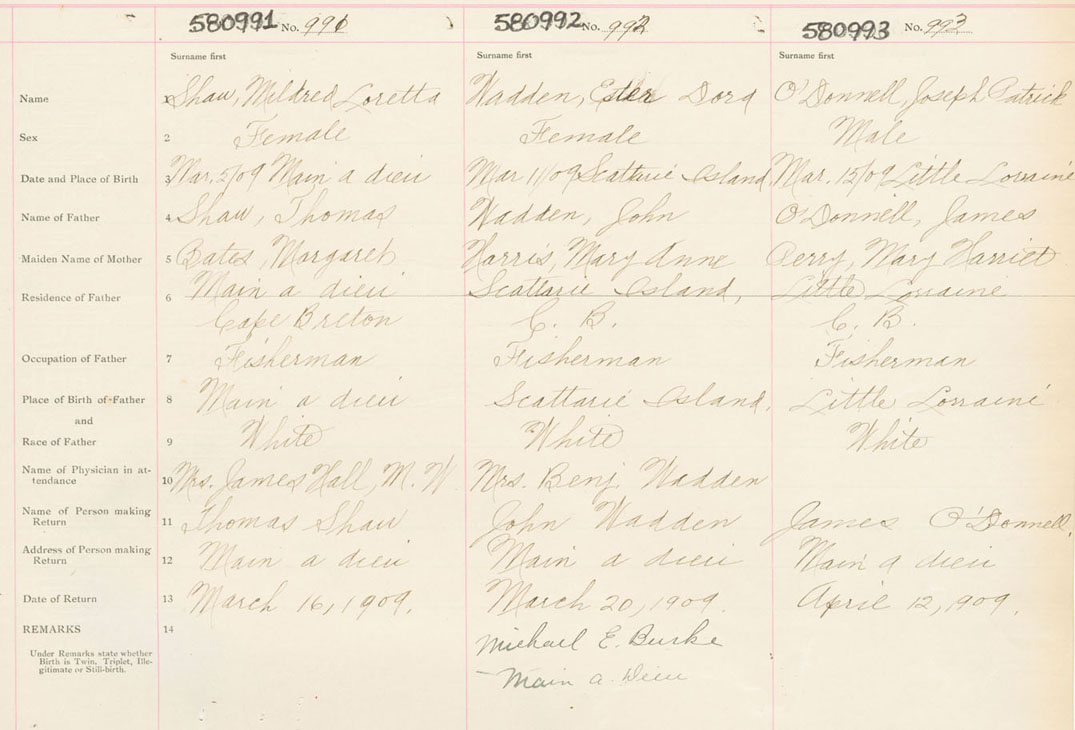 580991 No. 991 580992 No. 992 580993 No. 993
Surname first Surname first Surname first
Name 1 Shaw, Mildred Loretta Wadden, Ester Dora O'Donnell, Joseph Patrick
Sex 2 Female Female Male
Date and Place of Birth 3 Mar. 5/09 Main a dieu Mar 11/09 Scattarie Island, Mar. 15/09 Little Lorraine
Name of Father 4 Shaw, Thomas Wadden, John O'Donnell, James
Maiden Name of Mother 5 Bates, Margaret Harris, Mary Anne Perry, Mary Harriet
Residence of Father 6 Main a dieu Scattarie Island, Little Lorraine
Cape Breton C. B. C. B.
Occupation of Father 7 Fisherman Fisherman Fisherman
Place of Birth of Father 8 Main a dieu Scattarie Island. Little Lorraine
and
Race of Father 9 White White White
Name of Physician in at-
tendance 10 Mrs. James Hall, M. W. Mrs. Benj. Wadden
Name of Person making
Return 11 Thomas Shaw John Wadden James O'Donnell.
Address of Person making
Return 12 Main a dieu Main a dieu Main a dieu
Date of Return 13 March 16, 1909. March 20, 1909. April 12, 1909.
REMARKS 14
Michael E. Burke
Under Remarks state whether
Birth is Twin, Triplet, Ille-
gitimate or Still-birth.
Main a. Dieu